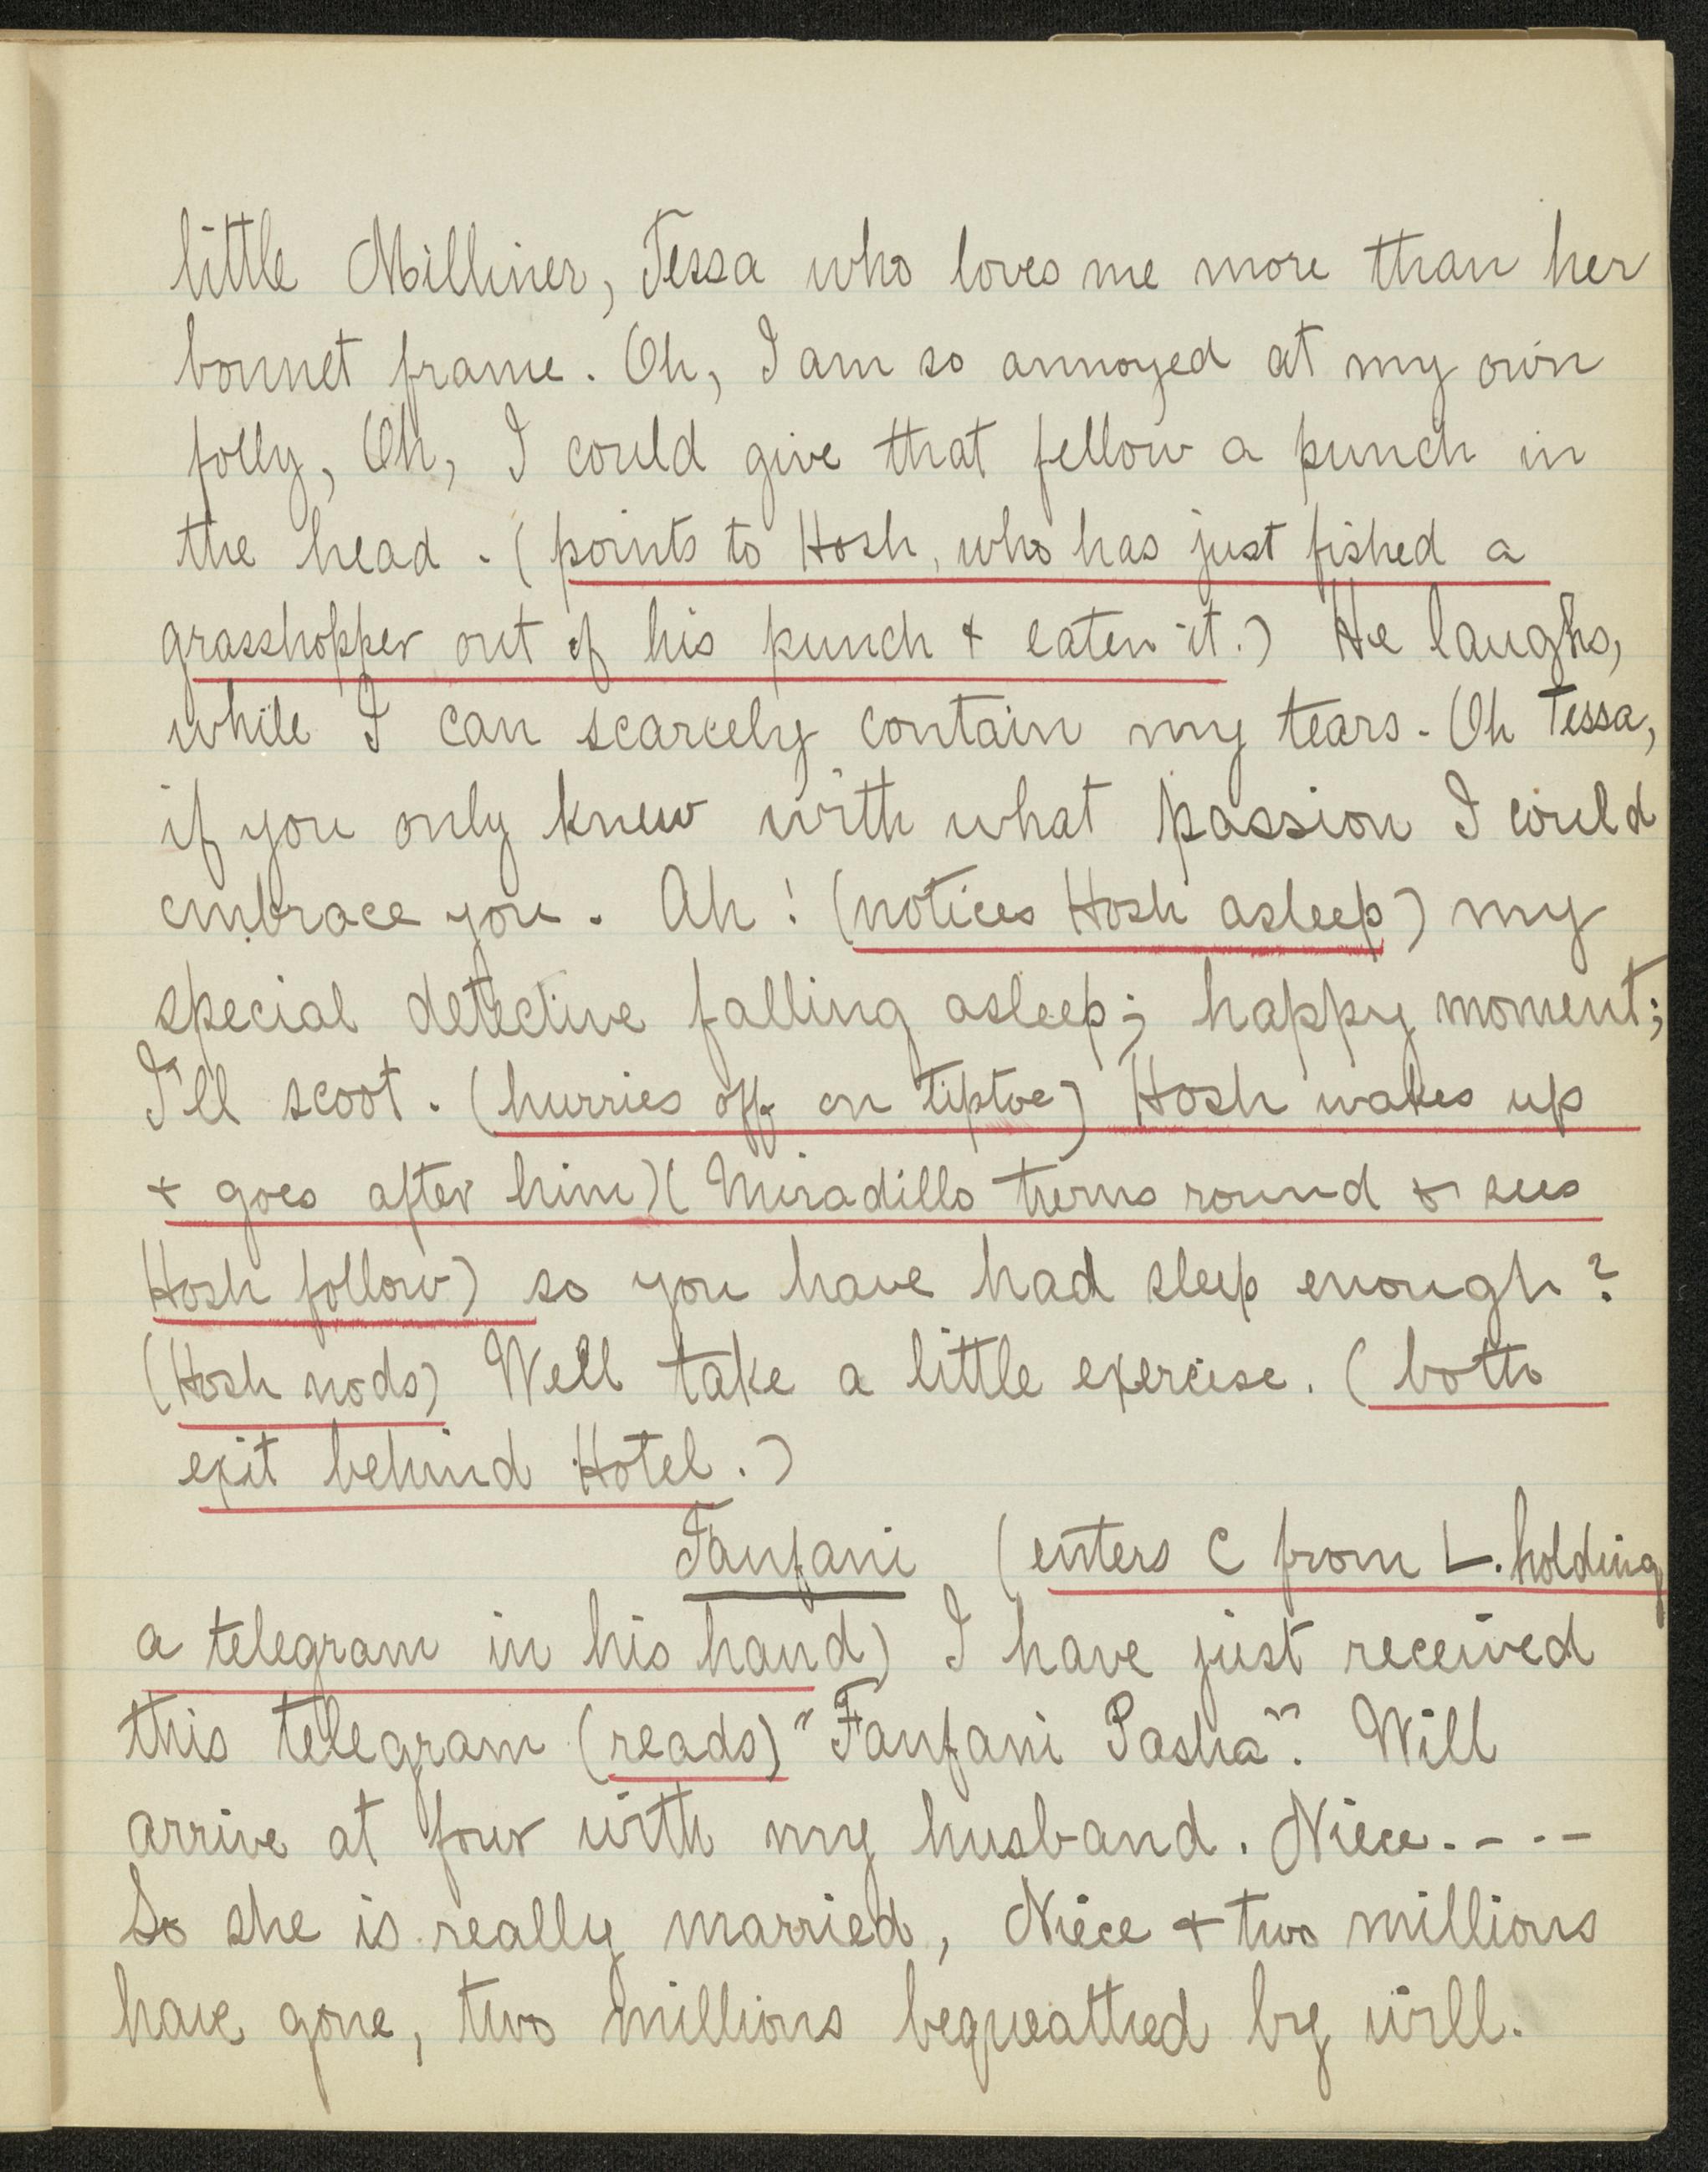 little Milliner, Tessa who loves me more than her
bonnet frame. Oh, I am so annoyed at my own
folly, Oh, I could give that fellow a punch in
the head. (points to Hosh, who has just fished a
grasshopper out of his punch & eaten it.) He laughs,
while I can scarcely contain my tears. Oh Tessa,
if you only knew with what passion I could
embrace you. Ah! (notices Hosh asleep) my
special detective falling asleep; happy moment;
I'll scoot. (hurries off on tiptoe) Hosh wakes up
& goes after him) (Miradillo turns round & sees
Hosh follow) so you have had sleep enough?
(Hosh nods) Well take a little exercise. (both
exit behind Hotel.)
Fanfani (enters C from L. holding
a telegram in his hand) I have just received
this telegram (reads) "Fanfani Pasha". Will
arrive at four with my husband. Niece. - . -
So she is really married, Niece & two millions
have gone, two millions bequeathed by will.